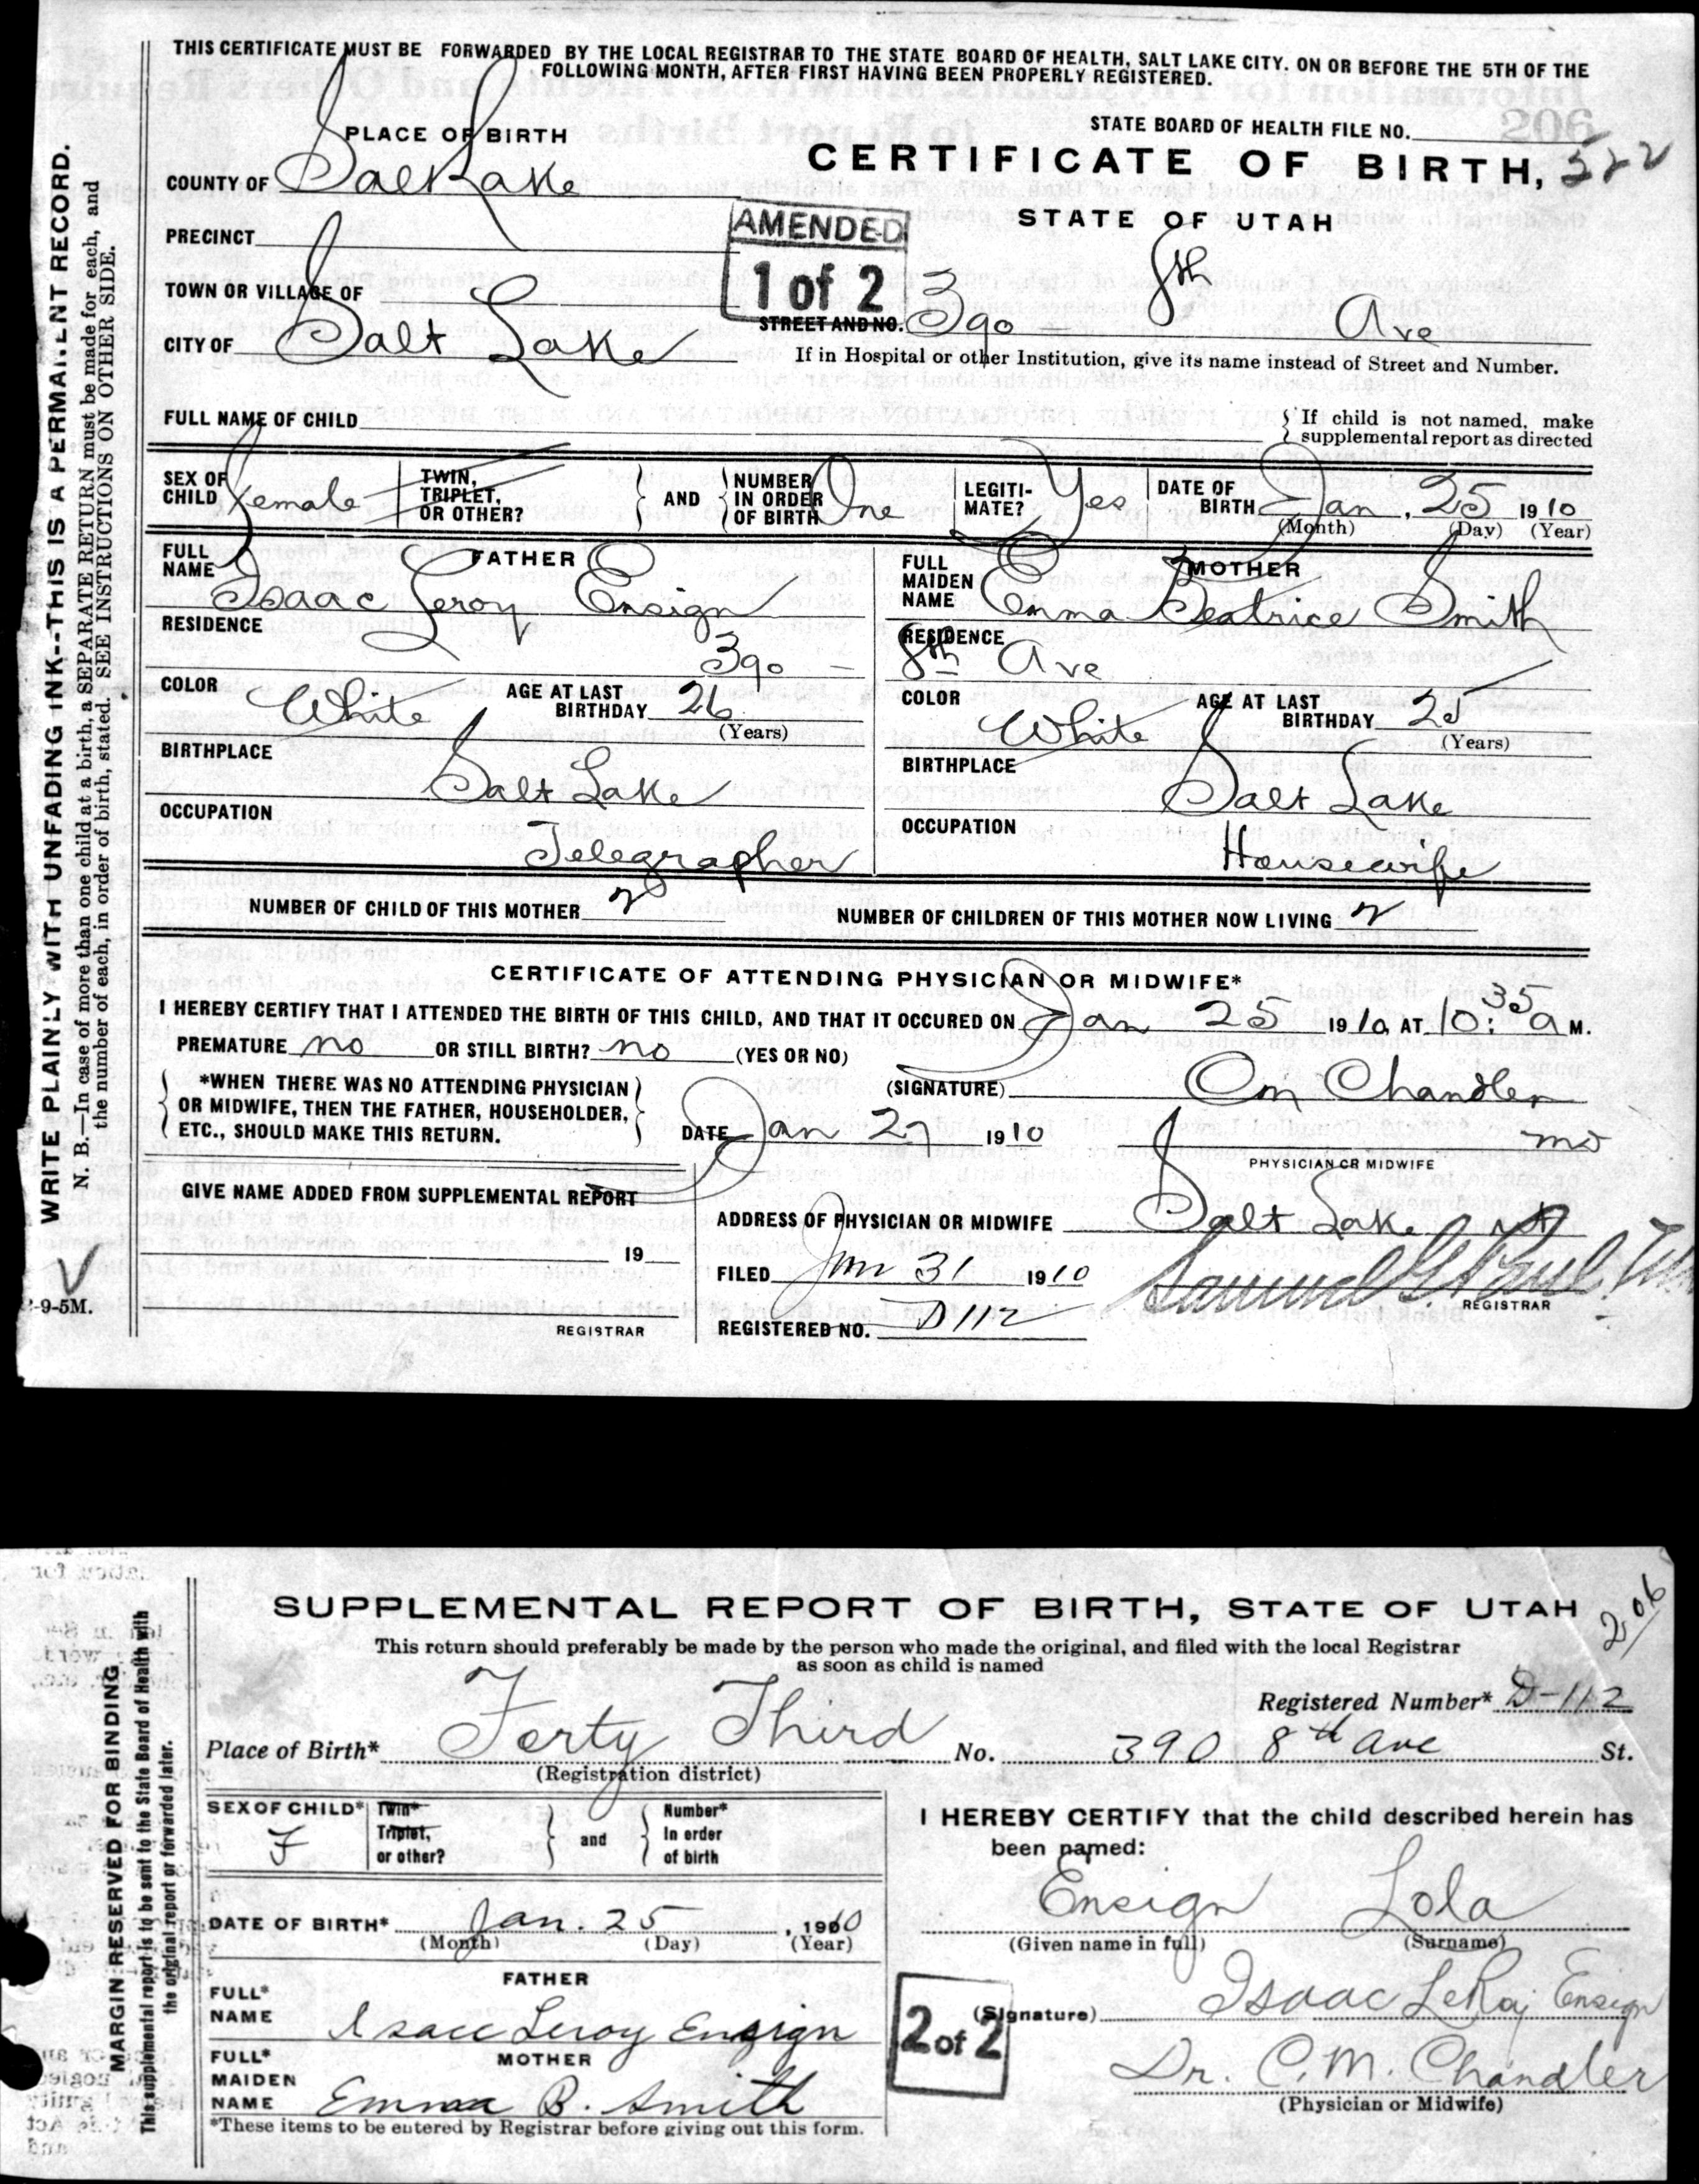 THIS CERTIFICATE MUST BE FORWARDED BY THE LOCAL REGISTRAR TO THE STATE BOARD OF HEALTH, SALT LAKE CITY. ON OR BEFORE THE 5TH OF THE
FOLLOWING MONTH, AFTER FIRST HAVING BEEN PROPERLY REGISTERED.
WRITE PLAINLY WITH UNFADING INK--THIS IS A PERMANENT RECORD.
N. B.—In case of more than one child at a birth, a SEPARATE RETURN must be made for each, and
the number of each, in order of birth, stated. SEE INSTRUCTIONS ON OTHER SIDE.
PLACE OF BIRTH
STATE BOARD OF HEALTH FILE NO. 206
COUNTY OF Salt Lake
CERTIFICATE OF BIRTH, 522
STATE OF UTAH
PRECINCT
AMENDED
1 of 2
TOWN OR VILLAGE OF
STREET AND NO. 390 8th Ave
CITY OF Salt Lake
If in Hospital or other Institution, give its name instead of Street and Number.
FULL NAME OF CHILD
If child is not named, make
supplemental report as directed
SEX OF CHILD Female
TWIN, TRIPLET, OR OTHER?
AND NUMBER IN ORDER OF BIRTH One
LEGITIMATE? Yes
DATE OF BIRTH Jan. 25 1910
(Month) (Day) (Year)
FATHER
FULL NAME Isaac Leroy Ensign
MOTHER
FULL MAIDEN NAME Emma Beatrice Smith
RESIDENCE 390 –
RESIDENCE 8th Ave
COLOR White AGE AT LAST BIRTHDAY 26
(Years)
COLOR White AGE AT LAST BIRTHDAY 25
(Years)
BIRTHPLACE Salt Lake
BIRTHPLACE Salt Lake
OCCUPATION Telegrapher
OCCUPATION Housewife
NUMBER OF CHILD OF THIS MOTHER 2
NUMBER OF CHILDREN OF THIS MOTHER NOW LIVING 2
CERTIFICATE OF ATTENDING PHYSICIAN OR MIDWIFE*
I HEREBY CERTIFY THAT I ATTENDED THE BIRTH OF THIS CHILD, AND THAT IT OCCURED ON Jan 25 1910, AT 10:35 a M.
PREMATURE no OR STILL BIRTH? no (YES OR NO)
*WHEN THERE WAS NO ATTENDING PHYSICIAN
OR MIDWIFE, THEN THE FATHER, HOUSEHOLDER,
ETC., SHOULD MAKE THIS RETURN.
(SIGNATURE) Cm Chandler
DATE Jan 27 1910
MD
PHYSICIAN OR MIDWIFE
GIVE NAME ADDED FROM SUPPLEMENTAL REPORT
19
REGISTRAR
ADDRESS OF PHYSICIAN OR MIDWIFE Salt Lake
FILED Jan 31 1910
Samuel G. Paul
REGISTRAR
REGISTERED NO. D 112
-9-5M.
SUPPLEMENTAL REPORT OF BIRTH, STATE OF UTAH
206
This return should preferably be made by the person who made the original, and filed with the local Registrar
as soon as child is named
MARGIN RESERVED FOR BINDING
This supplemental report is to be sent to the State Board of Health with
the original report or forwarded later.
Registered Number* D-112
Place of Birth* Forty Third No. 390 8th ave St.
(Registration district)
SEX OF CHILD* F
Twin* Triplet, or other?
and
Number* In order of birth
DATE OF BIRTH* Jan. 25, 1910
(Month) (Day) (Year)
FATHER
FULL* NAME Isacc Leroy Ensign
MOTHER
FULL* MAIDEN NAME Emma B. Smith
*These items to be entered by Registrar before giving out this form.
I HEREBY CERTIFY that the child described herein has
been named:
Ensign Lola
(Given name in full) (Surname)
2 of 2
(Signature) Isaac LeRoy Ensign
Dr. C. M. Chandler
(Physician or Midwife)